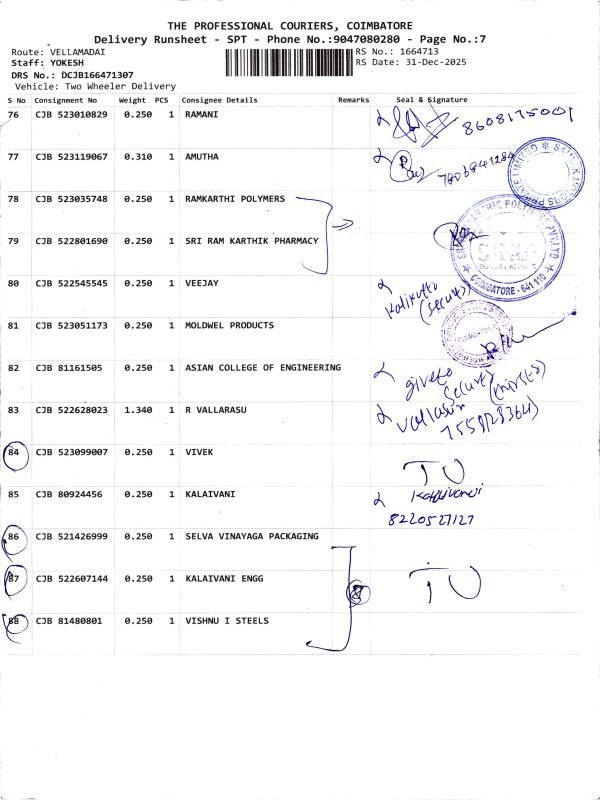 THE PROFESSIONAL COURIERS, COIMBATORE
Delivery Runsheet - SPT - Phone No.:9047080280 - Page No.:7
Route: VELLAMADAI
RS No.: 1664713
Staff: YOKESH
RS Date: 31-Dec-2025
DRS No.: DCJB166471307
Vehicle: Two Wheeler Delivery
S No Consignment No Weight PCS Consignee Details Remarks Seal & Signature
76 CJB 523010829 0.250 1 RAMANI 8608175001
77 CJB 523119067 0.310 1 AMUTHA
78 CJB 523035748 0.250 1 RAMKARTHI POLYMERS
79 CJB 522801690 0.250 1 SRI RAM KARTHIK PHARMACY
COIMBATORE - 641 110
80 CJB 522545545 0.250 1 VEEJAY
(Security)
81 CJB 523051173 0.250 1 MOLDWEL PRODUCTS
82 CJB 81161505 0.250 1 ASIAN COLLEGE OF ENGINEERING
83 CJB 522628023 1.340 1 R VALLARASU
84 CJB 523099007 0.250 1 VIVEK TU
85 CJB 80924456 0.250 1 KALAIVANI
8220527127
86 CJB 521426999 0.250 1 SELVA VINAYAGA PACKAGING
87 CJB 522607144 0.250 1 KALAIVANI ENGG TU
88 CJB 81480801 0.250 1 VISHNU I STEELS